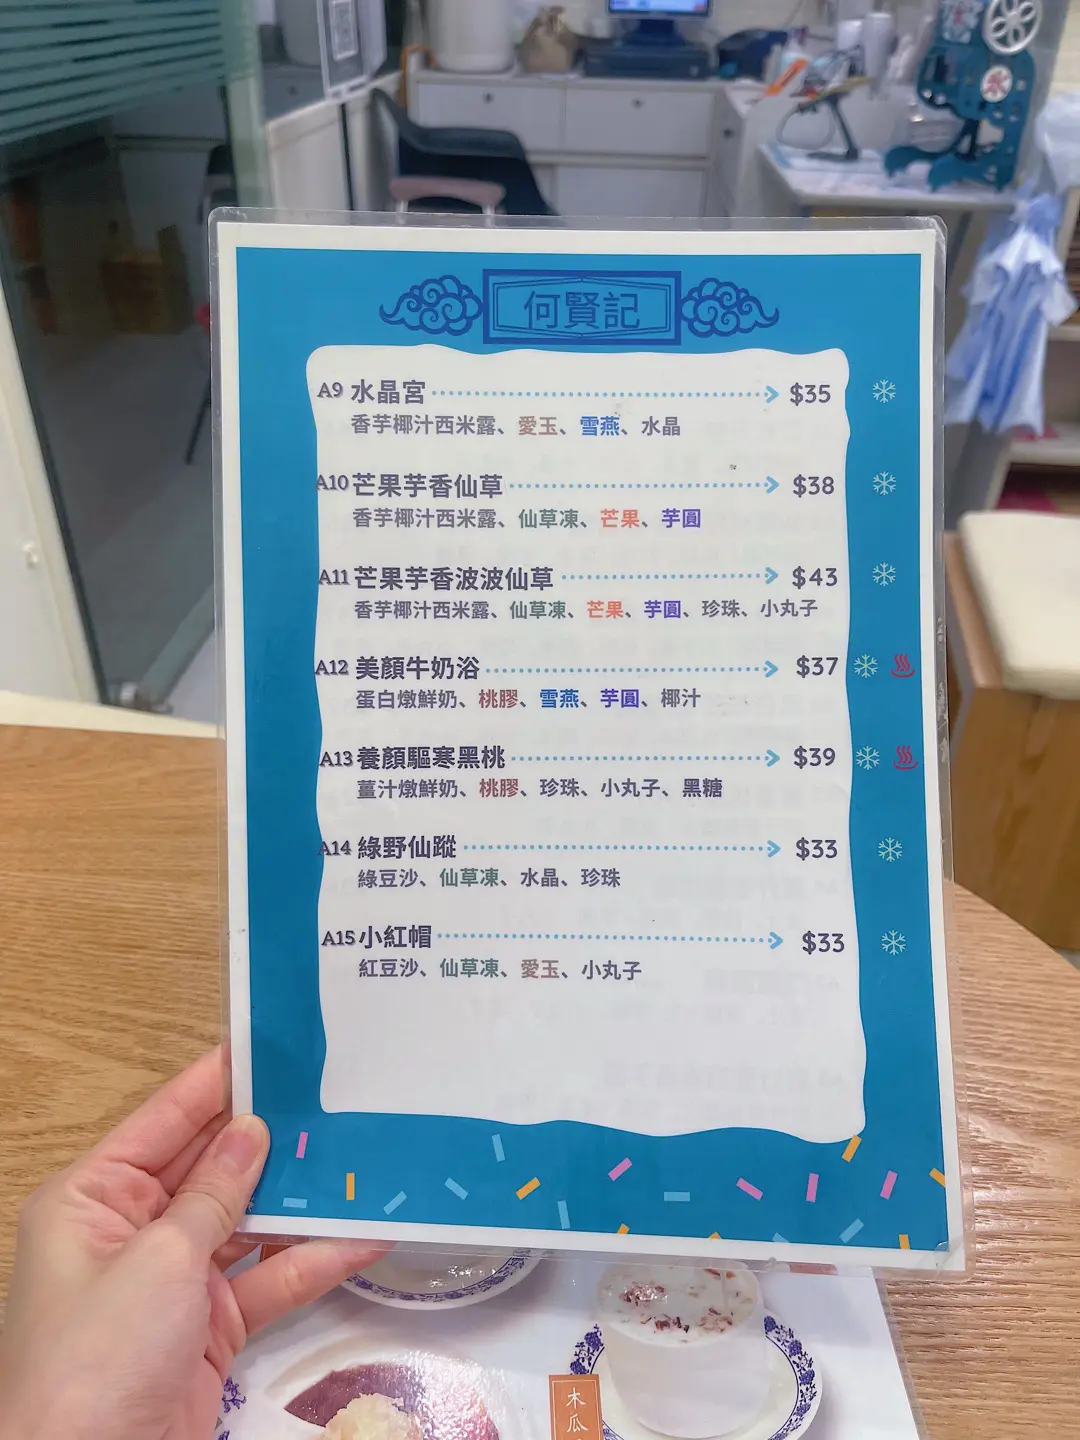 何賢記
A9 水晶宮 $35
香芋椰汁西米露、愛玉、雪燕、水晶
A10 芒果芋香仙草 $38
香芋椰汁西米露、仙草凍、芒果、芋圓
A11 芒果芋香波波仙草 $43
香芋椰汁西米露、仙草凍、芒果、芋圓、珍珠、小丸子
A12 美顏牛奶浴 $37
蛋白燉鮮奶、桃膠、雪燕、芋圓、椰汁
A13 養顏驅寒黑桃 $39
薑汁燉鮮奶、桃膠、珍珠、小丸子、黑糖
A14 綠野仙蹤 $33
綠豆沙、仙草凍、水晶、珍珠
A15 小紅帽 $33
紅豆沙、仙草凍、愛玉、小丸子
木瓜